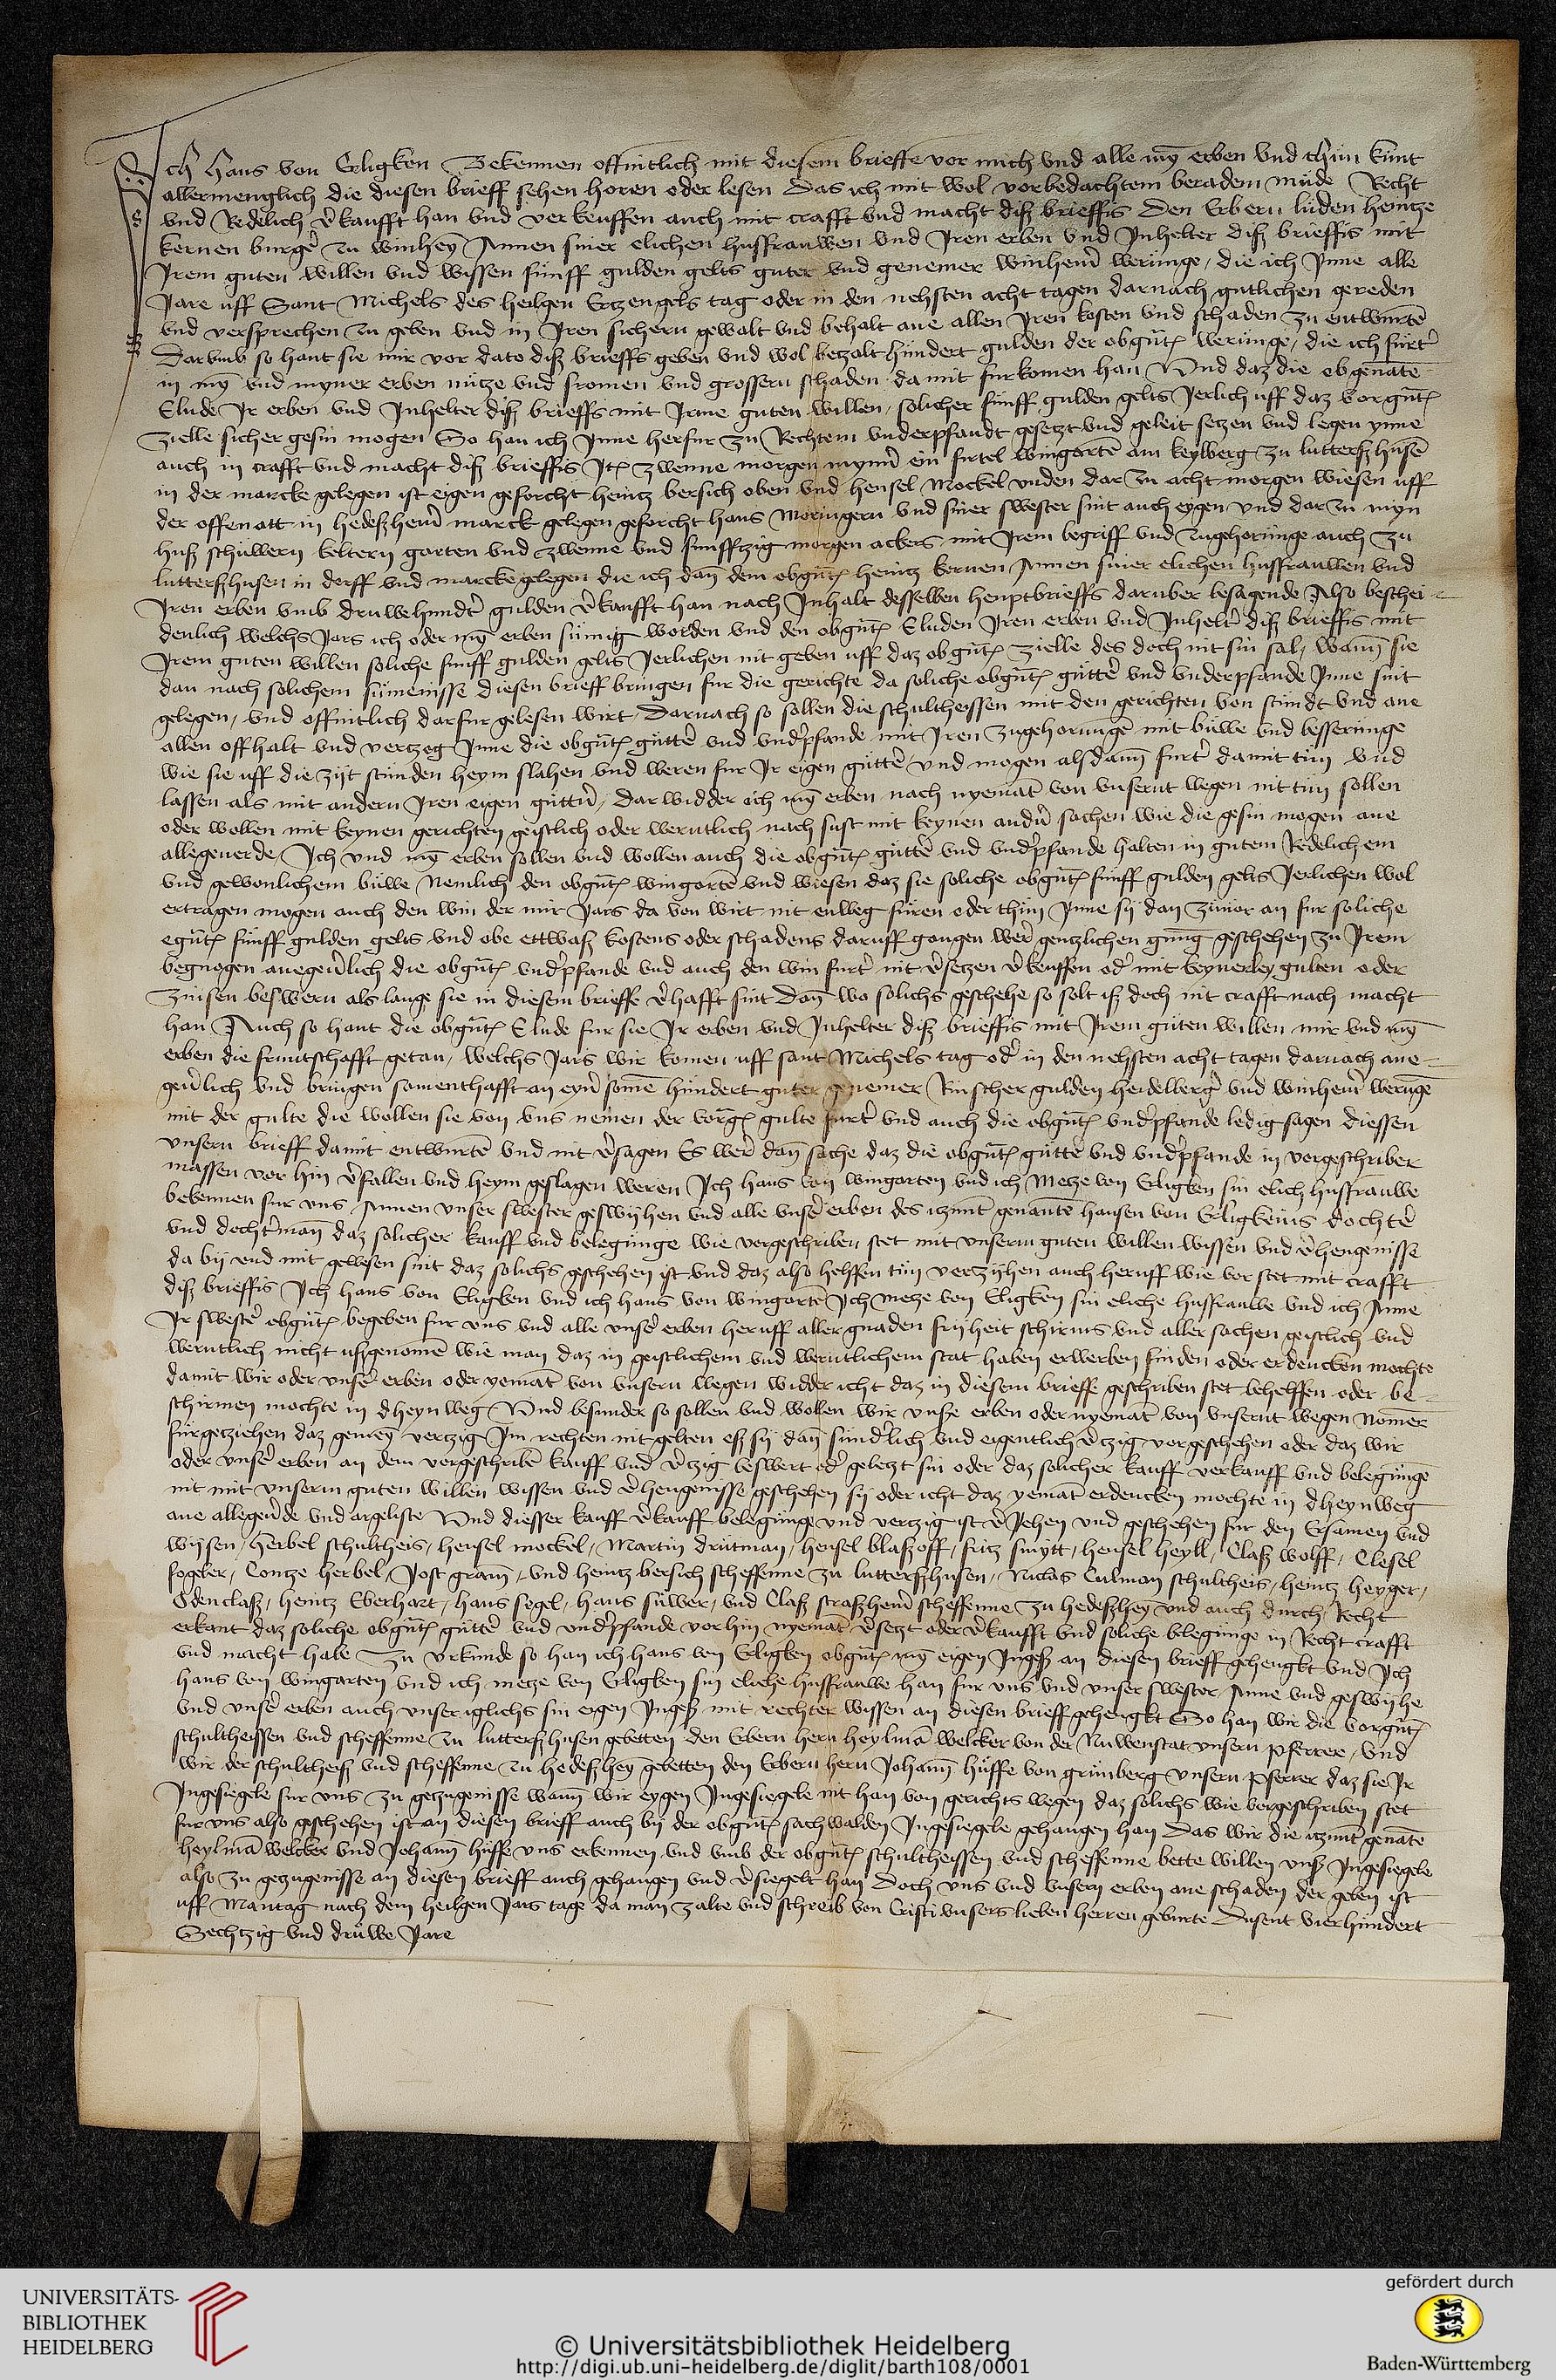 Ich Hans von Erligken Bekennen offintlich mit diesem brieffe vor mich vnd alle myn erben vnd thun kunt
allermenglich die diesen brieff sehen horen oder lesen Das ich mit wol vorbedachtem beradem mude Recht
vnd Redelich v̾kaufft han vnd verkeuffen auch mit crafft vnd macht diß brieffis Den Erbern luden Heintze
kernen burg̾ zu winheym̄ Annen siner elichen hussfrauwen vnd Iren erben vnd Inhelter diß brieffis mit
Irem guten willen vnd wissen funff gulden gelts guter vnd genemer winhem̾ werunge, die ich Inne alle
Jare uff Sant Michels des heilgen Ertzengels tag oder in den nehsten acht tagen darnach gutlichen gereden
vnd versprechen zu geben vnd in Iren sichern gewalt vnd behalt ane allen Iren kosten vnd schaden zu entwurtē
Darumb so hant sie mir vor dato diß brieffs geben vnd wol betzalt hundert gulden der obgn̄tē werunge, die ich furt̾
in myn̄ vnd myner erben nutze vnd fromen vnd grossern schaden damit furkomen han Vnd daz die obgenātē
Elude Ir erben vnd Inhelter diß brieffs mit Irme guten willen, solicher funff gulden gelts Jerlich uff daz vorgn̄t
zielle sicher gesin mogen So han ich Inne herfur zu Rechtem vnderpfandt gesetzt vnd geleit setzen vnd legen ynne
auch in crafft vnd macht diß brieffis Itē zwenne morgen mynn̾ ein firtel wingartē am keylberg zu lutterßhusē
in der marcke gelegen ist eigen geforcht heintz bersich oben vnd hensel Mockel vnden dar zu acht morgen wiesen uff
der offenatt in hedeßhem̾ marck gelegen geforcht hans Moringern vnd siner swester sint auch eygen vnd dar zu myn
huß schuwern keltern garten vnd zwenne vnd funfftzig morgen ackers mit Irem begriff vnd zugehorunge auch zu
lutterßhusen in dorff vnd marcke gelegen die ich dan̄ dem obgn̄tē heintz kernen Annen siner elichen hussfrauwen vnd
Iren erben vmb druwehundt̾ gulden v̾kaufft han nach Inhalt desselben heuptbrieffs daruber besagende Also beschei-
denlich welchs Jars ich oder myn̄ erben sumig worden vnd den obgn̄tē Eluden Iren erben vnd Inhelt̾ diß brieffis mit
Irem guten willen soliche funff gulden gelts Jerlichen nit geben uff daz obgn̄tē zielle des doch nit sin sal, wann̄ sie
dan nach solichem sumenisse diesen brieff bringen fur die gerichte da soliche obgn̄tē gutt̾ vnd vnderpfande Inne sint
gelegen, vnd offintlich darfur gelesen wirt, Darnach so sollen die schultheissen mit den gerichten von stundt vnd ane
allen offhalt vnd vertzog Inne die obgn̄tē gutt̾ vnd vnd̾pfande mit Iren zugehorungē mit buwe vnd besserunge
wie sie uff die zijt stunden heym slahen vnd weren fur Ir eigen gutt̾ vnd mogen alsdann̄ furt̾ damit tun vnd
lassen als mit andern Iren eigen guttn̾, dar widder ich myn̄ erben nach nyemāt von vnsernt wegen nit tun sollen
oder wollen mit keynen gerichten geistlich oder werntlich nach sust mit keynen andn̾ sachen wie die gesin mogen ane
allegeuerde, Ich vnd myn̄ erben sollen vnd wollen auch die obgn̄tē gutt̾ vnd vnd̾pfande halten in gutem Redelichem
vnd gewonlichem buwe Nemlich den obgn̄tē wingartē vnd wiesen daz sie soliche obgn̄tē funff gulden gelts Jerlichen wol
ertragen mogen auch den win der mir Jars da von wirt nit enweg furen oder thun Inne sij dan zuuor an fur soliche
egn̄tē funff gulden gelts vnd obe ettwaß kostens oder schadens daruff gangen wer̾ gentzlichen gnug geschehen zu Irem
begnogen anegeu̾lich die obgn̄tē vnd̾pfande vnd auch den win furt̾ nit v̾setzen v̾keuffen od̾ mit keynerley gulten oder
zinsen beswern als lange sie in diesem brieffe v̾hafft sint Dan̄ wo solichs geschehe so solt iß doch nit crafft nach macht
han Auch so hant die obgn̄tē Elude fur sie Ir erben vnd Inhelter diß brieffis mit Irem guten willen mir vnd myn̄
erben die fruntschafft getan, welchs Jars wir komen uff sant Michels tag od̾ in den nehsten acht tagen darnach ane-
geu̾lich vnd bringen samenthafft an eyn̾ somē hundert guter genemer Rinscher gulden heidelberg̾ vnd winhem̾ werūgē
mit der gulte die wollen sie von vns nemen der vorgn̄ gulte furt̾ vnd auch die obgn̄tē vnd̾pfande ledig sagen diessen
vnsern brieff damit entwurtē vnd nit v̾sagen Es wer̾ dan̄ sache daz die obgn̄tē gutt̾ vnd vnd̾pfande in vorgeschriber
massen vor hin v̾fallen vnd heym geslagen weren Ich hans von wingarten vnd ich Metze von Erligken sin elich hussfrauwe
bekennen fur vns Annen vnser swester geswijhen vnd alle vns̾ erben des itzunt genantē hansen von Erligkens docht̾
vnd docht̾man̄ daz solicher kauff vnd belegunge wie vorgeschriben stet mit vnserm guten willen wissen vnd v̾hengenisse
da bij vnd mit gewesen sint daz solichs geschehen ist vnd daz also helffen tun vertzijhen auch heruff wie vor stet mit crafft
diß brieffis Ich hans von Erligken vnd ich hans von wingartē Ich Metze von Erligken sin eliche hussfrauwe vnd ich Anne
Ir swest̾ obgn̄tē begeben fur vns vnd alle vns̾ erben heruff aller gnaden fryheit schirms vnd aller sachen geistlich vnd
werntlich nicht ußgenomē wie man daz in geistlichem vnd werntlichem stat haben erwerben finden oder erdencken mochte
damit wir oder vns̾ erben oder yemāt von vnsern wegen widder icht daz in diesem brieffe geschriben stet behelffen oder be-
schirmen mochte in dheyn weg Vnd besunder so sollen vnd wollen wir vnße erben oder nyemāt von vnsernt wegen nomer
furgetziehen daz gemeyn̄ vertzig Im rechten nit gelten eß sij dan̄ sund̾lich vnd eigentlich v̾tzig vorgeschehen oder daz wir
oder vns̾ erben an dem vorgeschribē kauff vnd v̾tzig beswert od̾ geletzt sin oder daz solicher kauff verkauff vnd belegunge
nit mit vnserm guten willen wissen vnd v̾hengenisse geschehen sij oder icht daz yemāt erdencken mochte in dheyn weg
ane allegeu̾de vnd argeliste Vnd diesser kauff v̾kauff belegunge vnd vertzig ist v̾Jehen vnd geschehen fur den Ersamen vnd
wijsen, herbel schultheis, hensel mockel, Martin drutman, hensel blaßoff, fritz smytt, hensel heyll, Claß wolff, Clesel
fogeler, Contze herbel, Jost gram̄, vnd heintz bersich scheffenne zu lutterßhusen, Niclas Culman schultheis, heintz heyger,
Odenclaß, heintz Eberhart, hans segel, hans suwer, vnd Claß straßhem̾ scheffenne zu hedeßheym̄ vnd auch durch Recht
erkant daz soliche obgn̄tē gutt̾ vnd vnd̾pfande vor hin nyemāt v̾setzt oder v̾kaufft vnd soliche belegunge in Recht crafft
vnd macht habe Zu vrkunde so han ich hans von Erligken obgn̄tē myn̄ eigen Ingeß an diesen brieff gehengkt vnd Ich
hans von wingarten vnd ich metze von Erligken sin eliche hussfrauwe han fur vns vnd vnser swester Anne vnd geswijhe
vnd vns̾ erben auch vnser iglichs sin eigen Ingeß mit rechter wissen an diesen brieff gehengkt So han wir die vorgn̄tē
schultheissen vnd scheffenne zu lutterßhusen gebetten den Erbern hern heylmā welcker von der Nuwenstat vnsern pferrer, vnd
wir der schultheiß vnd scheffenne zu hedeßheym̄ gebetten den Erbern hern Johann̄ huffe von grunberg vnsern pferrer daz sie Ir
Ingesiegele fur vns zu getzugenisse wann̄ wir eygen Ingesiegele nit han von gerichts wegen daz solichs wie vorgeschriben stet
fur vns also geschehen ist an diesen brieff auch bij der obgn̄tē sachwalden Ingesiegele gehangen han Das wir die itzunt genātē
heylmā welcker vnd Johann̄ huffe vns erkennen vnd vmb der obgn̄tē schultheissen vnd scheffenne bette willen vnß Ingesiegele
also zu getzugenisse an diesen brieff auch gehangen vnd v̾siegelt han Doch vns vnd vnsern erben ane schaden der geben ist
uff Mantag nach dem heilgen Jars tage da man zalte vnd schreib von Cristi vnsers lieben herren geburte Dusent vierhundert
Sechtzig vnd druwe Jare
UNIVERSITÄTS-
BIBLIOTHEK
HEIDELBERG
© Universitätsbibliothek Heidelberg
http://digi.ub.uni-heidelberg.de/diglit/barth108/0001
gefördert durch
Baden-Württemberg